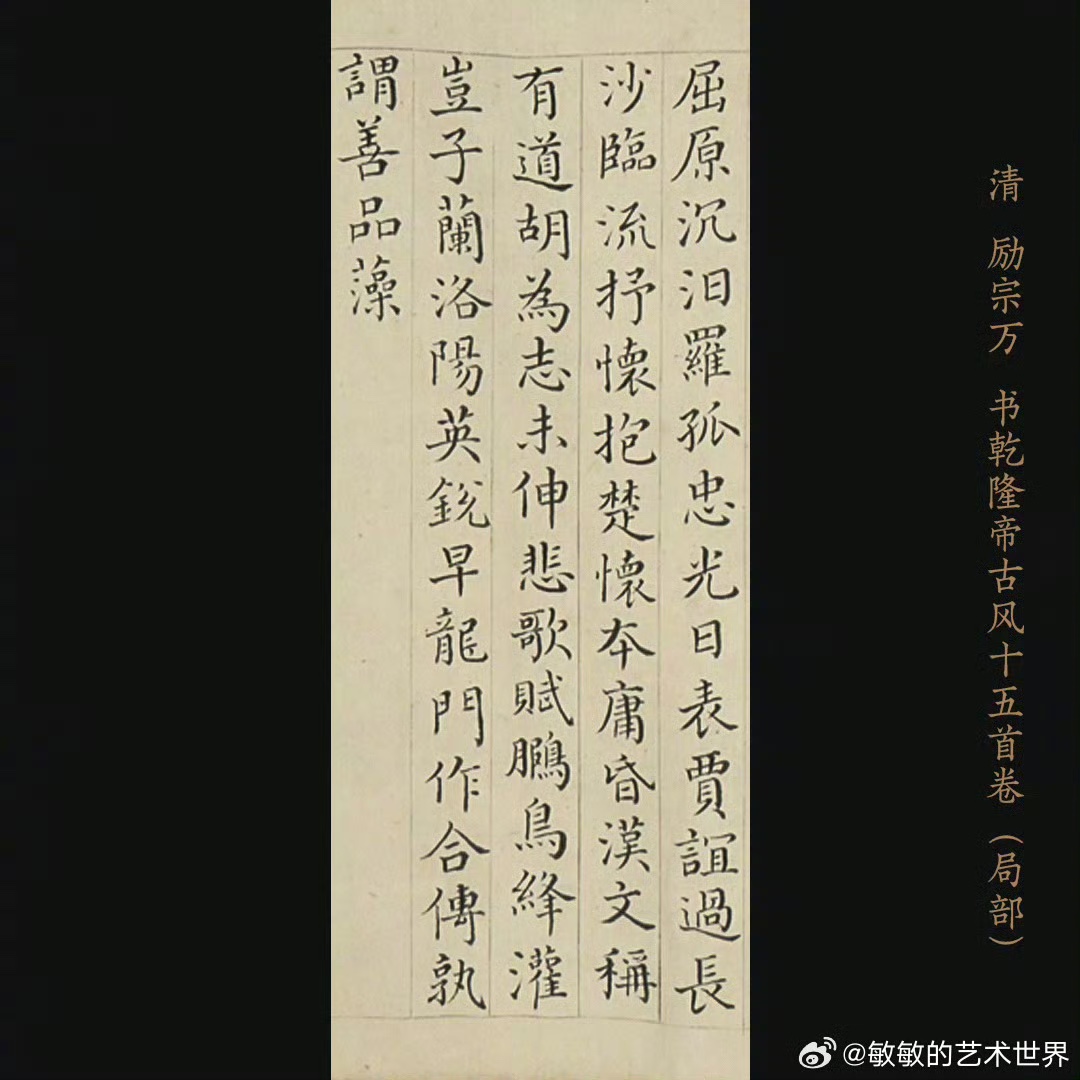 屈原沉汨羅孤忠光日表賈誼過長
沙臨流抒懷抱楚懷本庸昏漢文稱
有道胡為志未伸悲歌賦鵩鳥絳灌
豈子蘭洛陽英銳早龍門作合傳孰
謂善品藻
清 励宗万 书乾隆帝古风十五首卷（局部）
@敏敏的艺术世界